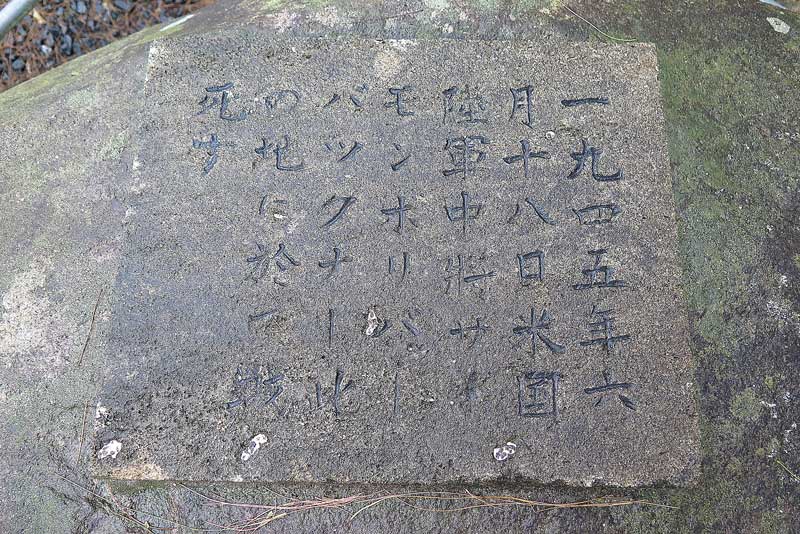 一九四五年六
月十八日米国
陸軍中將サイ
モンホリバー
バツクナー此
の地に於て戦
死す